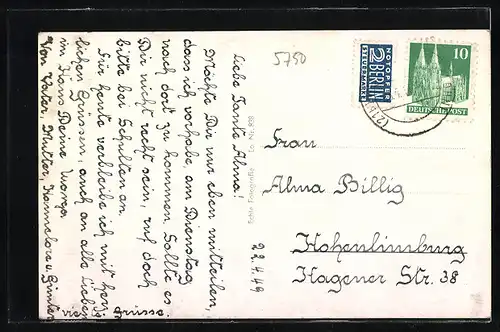 5750
Liebe Tante Alma!
Möchte Dir nur eben mitteilen,
dass ich vorhabe, am Dienstag
nach dort zu kommen. Sollte es
Dir nicht recht sein, ruf doch
bitte bei Schulten an.
Für heute verbleibe ich mit herz-
lichen Grüssen, auch an alle Lieben
im Haus Deine
Von Vater, Mutter, Hannelore u. Günter
viele Grüsse.
22.4.49
Echte Fotografie
NOTOPFER
2 BERLIN
STEUERMARKE
10
DEUTSCHE POST
Frau
Alma Billig
Hohenlimburg
Hagener Str. 38